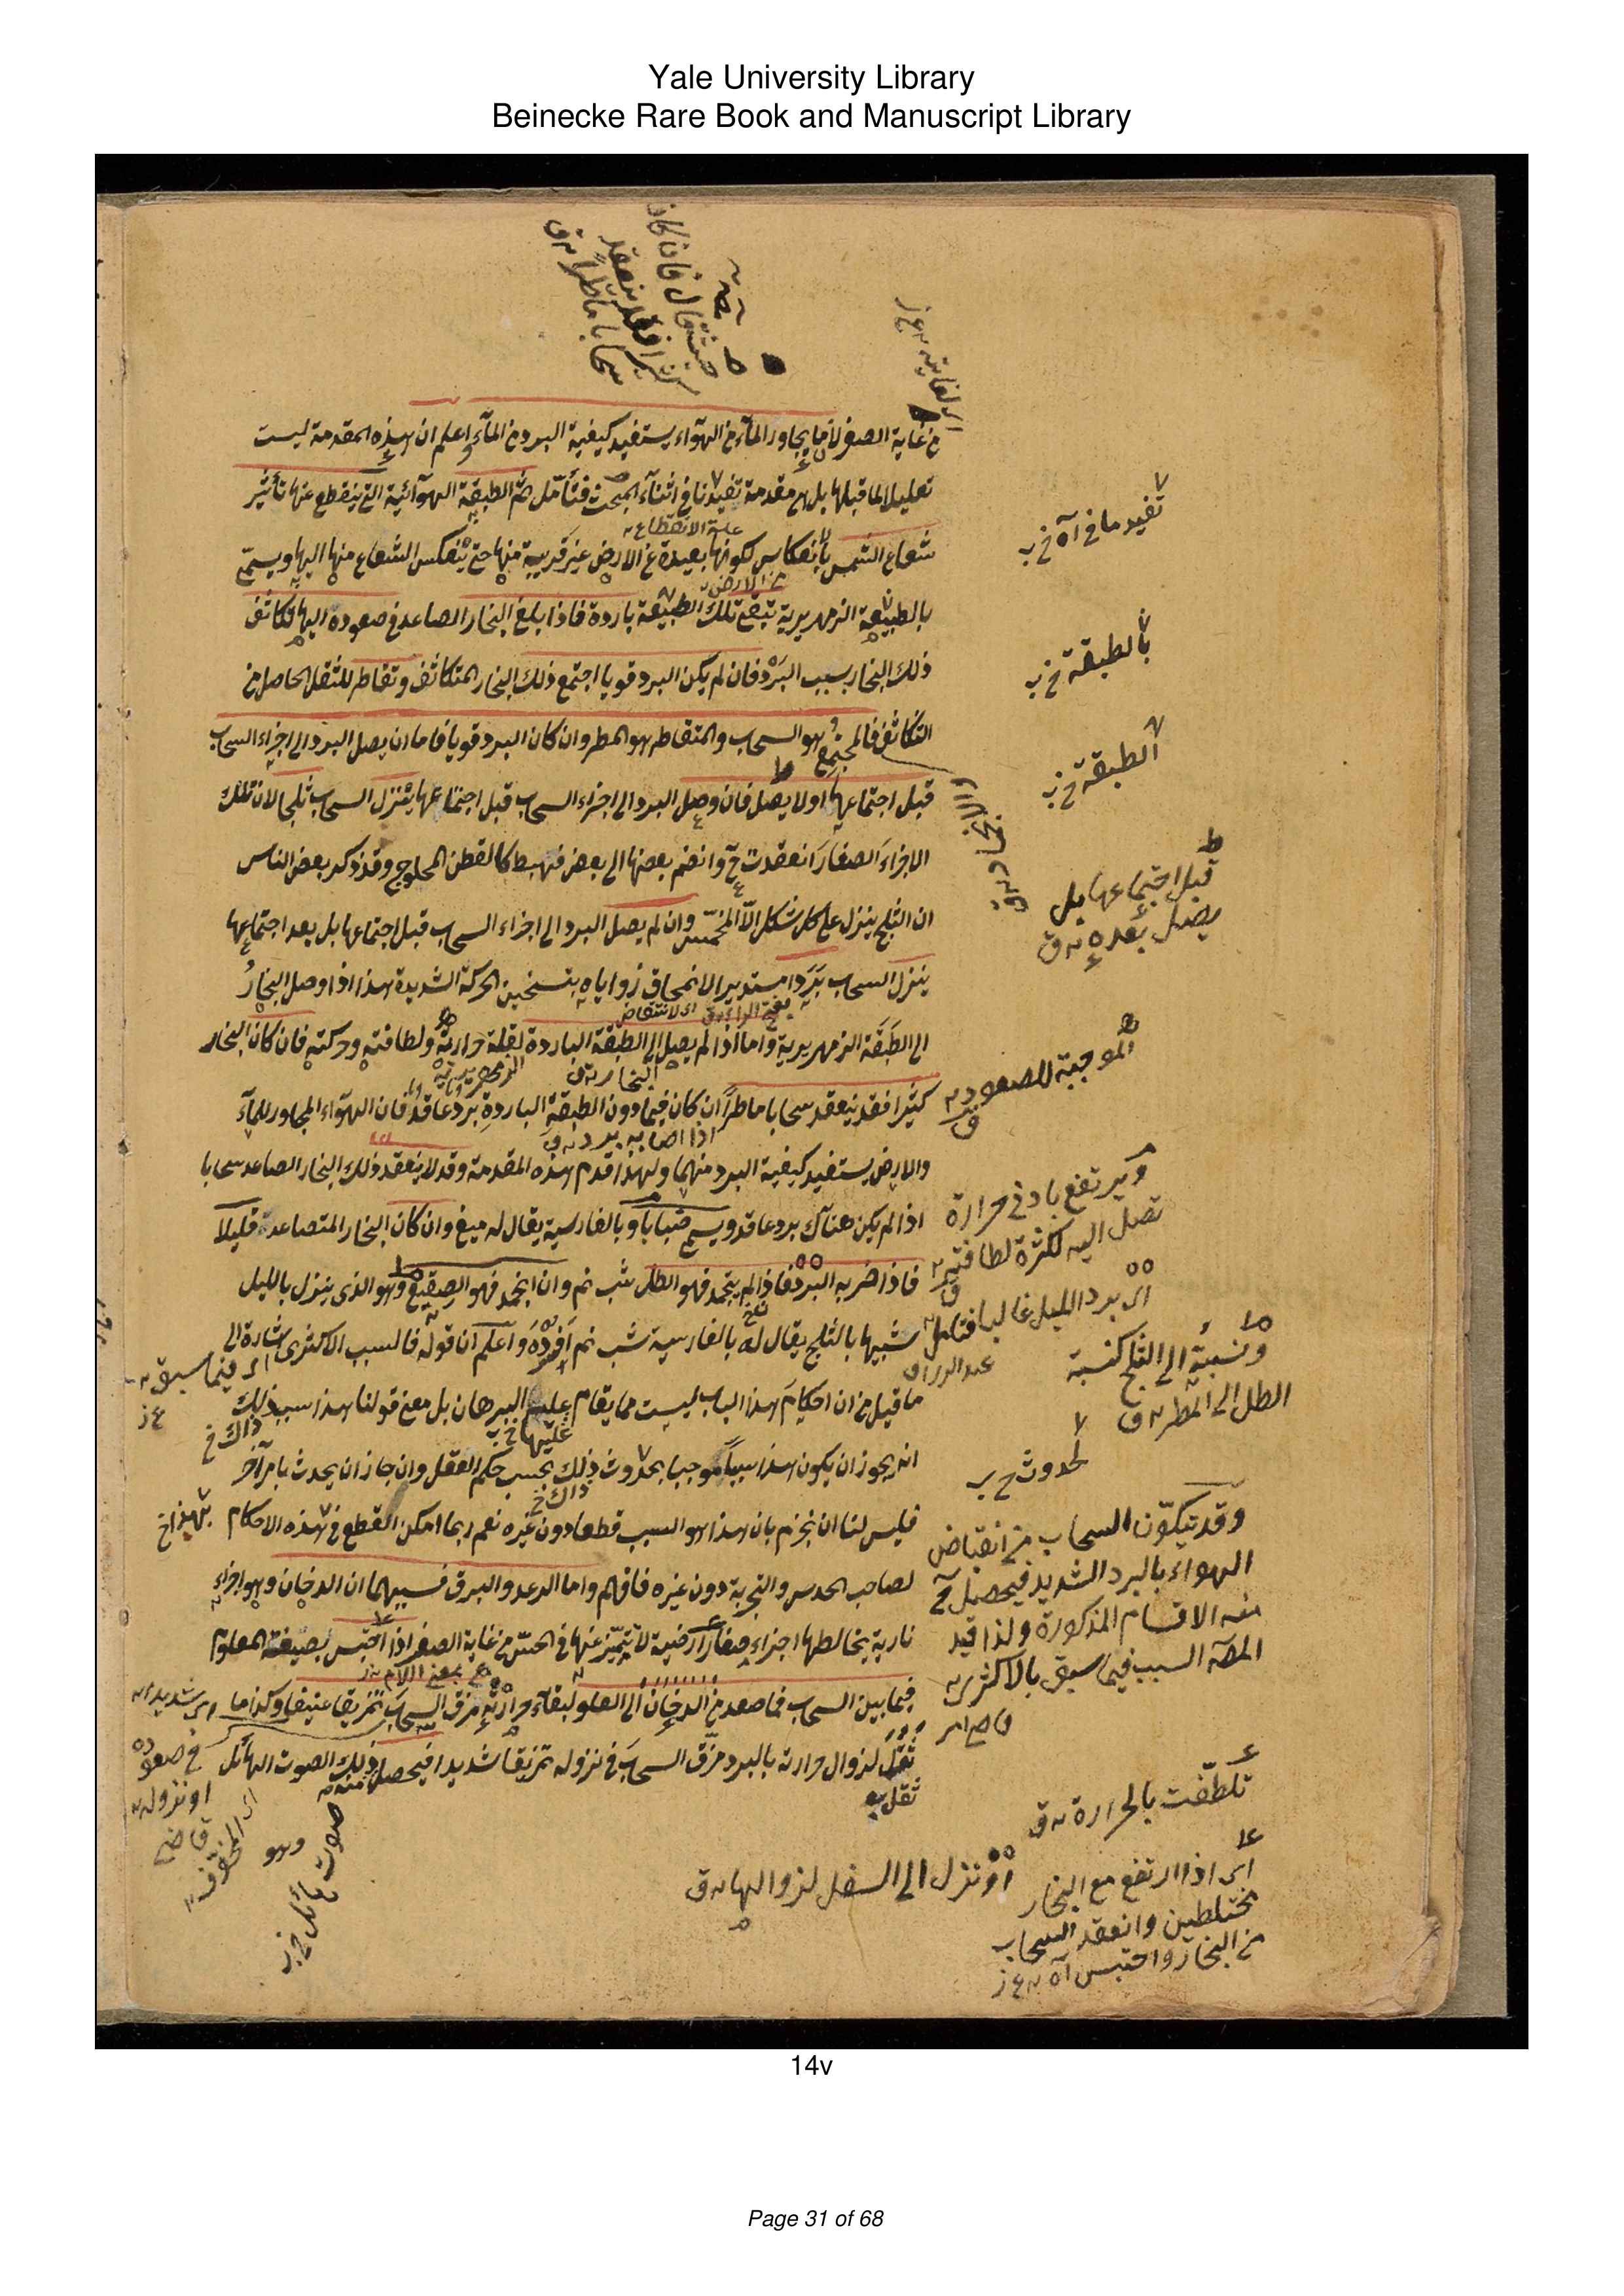 Yale University Library
Beinecke Rare Book and Manuscript Library
من غاية الصغر لان ما يجاور الماء من الهواء يستفيد كيفية البرد من الماء واعلم ان هذه المقدمة ليست
تعليلا لما قبلها بل هى مقدمة تفيدنا فى اثناء المبحث فتأمل ثم الطبقة الهوائية التى ينقطع عنها تأثير
علة الانقطاع
شعاع الشمس بانعكاس لكونها بعيدة عن الارض غير قريبة منها حتى ينعكس الشعاع منها اليها ويسمى
من الارض
بالطبيعة الزمهريرية تبقى تلك الطبيعة باردة فاذا بلغ البخار الصاعد فى صعوده اليها تكاثف
ذلك البخار بسبب البرد فان لم يكن البرد قويا اجتمع ذلك البخار المتكاثف وتقاطر للثقل الحاصل من
التكاثف فالمجتمع هو السحاب والمتقاطر هو المطر وان كان البرد قويا فاما ان يصل البرد الى اجزاء السحاب
قبل اجتماعها او لا يصل فان وصل البرد الى اجزاء السحاب قبل اجتماعها ينزل السحاب ثلجا لان تلك
الاجزاء الصغار انعقدت ح وانضم بعضها الى بعض فهبط كالقطن المحلوج وقد ذكر بعض الناس
ان الثلج ينزل على كل شكل الا المخمس وان لم يصل البرد الى اجزاء السحاب قبل اجتماعها بل بعد اجتماعها
ينزل السحاب بردا مستديرا لانمحاق زواياه بتسخين الحركة الشديدة هذا اذا وصل البخار
الى الطبقة الزمهريرية واما اذا لم يصل الى الطبقة الباردة لقلة حرارته ولطافته وحركته فان كان البخار
كثيرا فقد ينعقد سحابا ماطرا ان كان فيما دون الطبقة الباردة برد عاقد فان الهواء المجاور للماء
اذا اصابه برد
والارض يستفيد كيفية البرد منهما ولهذا قدم هذه المقدمة وقد لا ينعقد ذلك البخار الصاعد سحابا
اذا لم يكن هناك برد عاقد ويسمى ضبابا وبالفارسية يقال له ميغ وان كان البخار المتصاعد قليلا
فاذا ضربه البرد فاذا لم يتجمد فهو الطل شب نم وان انجمد فهو الصقيع وهو الذى ينزل بالليل
شبيها بالثلج يقال له بالفارسية شب نم افرده واعلم ان قوله فالسبب الاكثرى اشارة الى
ما قيل من ان احكام هذا الباب ليست مما يقام عليه البرهان بل معنى قولنا هذا سبب ذلك
انه يجوز ان يكون هذا سببا موجبا بحدوث ذلك بحسب حكم العقل وان جاز ان يحدث بامر آخر
فليس لنا ان نجزم بان هذا هو السبب قطعا دون غيره نعم ربما امكن القطع فى هذه الاحكام
لصاحب الحدس والتجربة دون غيره فافهم واما الرعد والبرق فسببهما ان الدخان وهو اجزاء
نارية يخالطها اجزاء صغار ارضية لا تتميز عنها فى الحس من غاية الصغر اذا احتبس بصيغة المعلوم
فيما بين السحاب فما صعد من الدخان الى العلو لبقاء حرارته مزق السحاب تمزيقا عنيفا وكذا ما
ثقل لزوال حرارته بالبرد مزق السحاب فى نزوله تمزيقا شديدا فيحصل ذلك الصوت الهائل
بالطبقة
الطبقة
قبل اجتماعها بل
يصل بعده
الموجبة للصعود
ويرتفع بادنى حرارة
تصل اليه لكثرة لطافته
اى برد الليل غالبا فتأمل
عبد الرزاق
ونسبته الى الثلج كنسبة
الطل الى المطر
لحدوث
وقد يتكون السحاب من انقباض
الهواء بالبرد الشديد فيحصل ح
منه الاقسام المذكورة ولذا قيد
المص السبب فيما سبق بالاكثرى
تلطفت بالحرارة
اى اذا ارتفع مع البخار
مختلطين وانعقد السحاب
من البخار واحتبس
او نزل الى السفل لزوالها
اى فيما سبق
اى شديدا
فى صعوده
او نزوله
صوت هائل
14v
Page 31 of 68